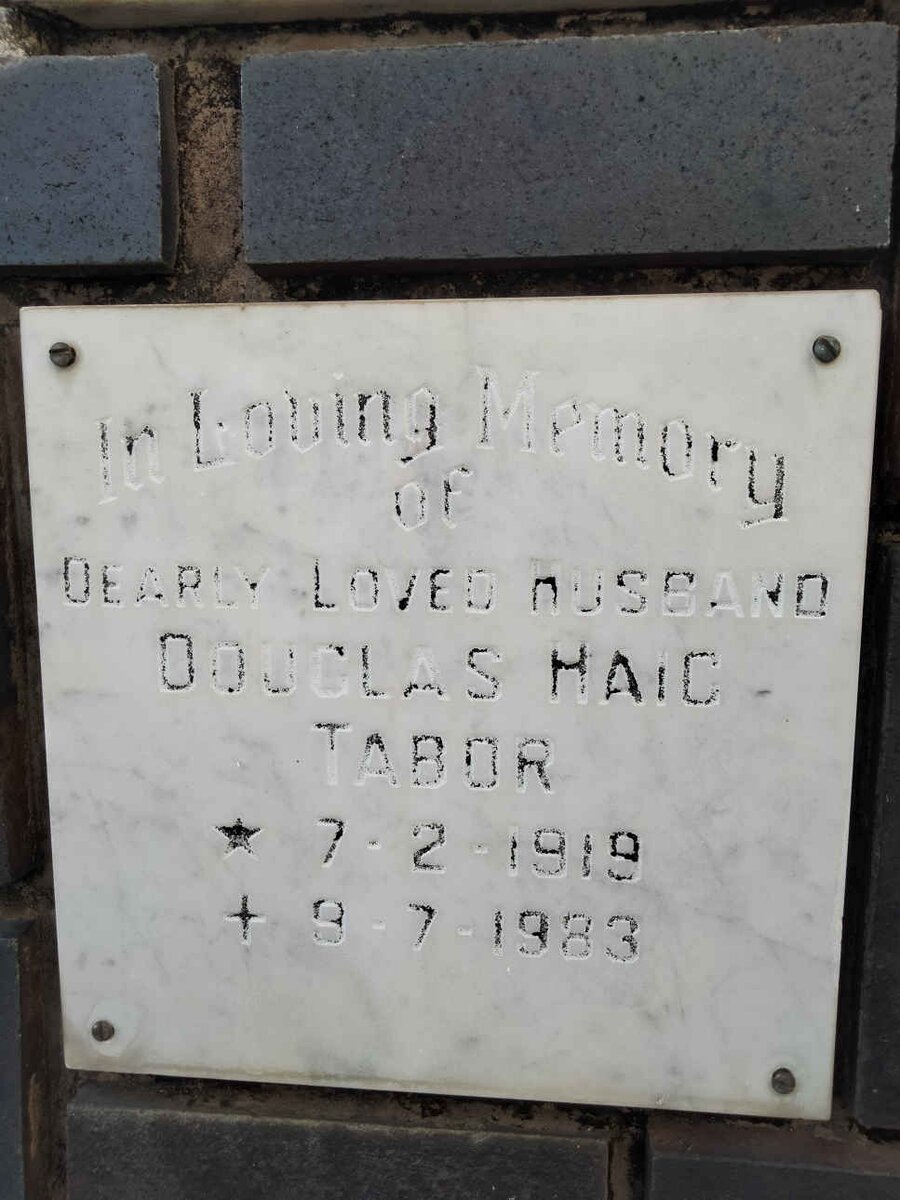 In Loving Memory
of
DEARLY LOVED HUSBAND
DOUGLAS HAIG
TABOR
★ 7-2-1919
✝ 9-7-1983